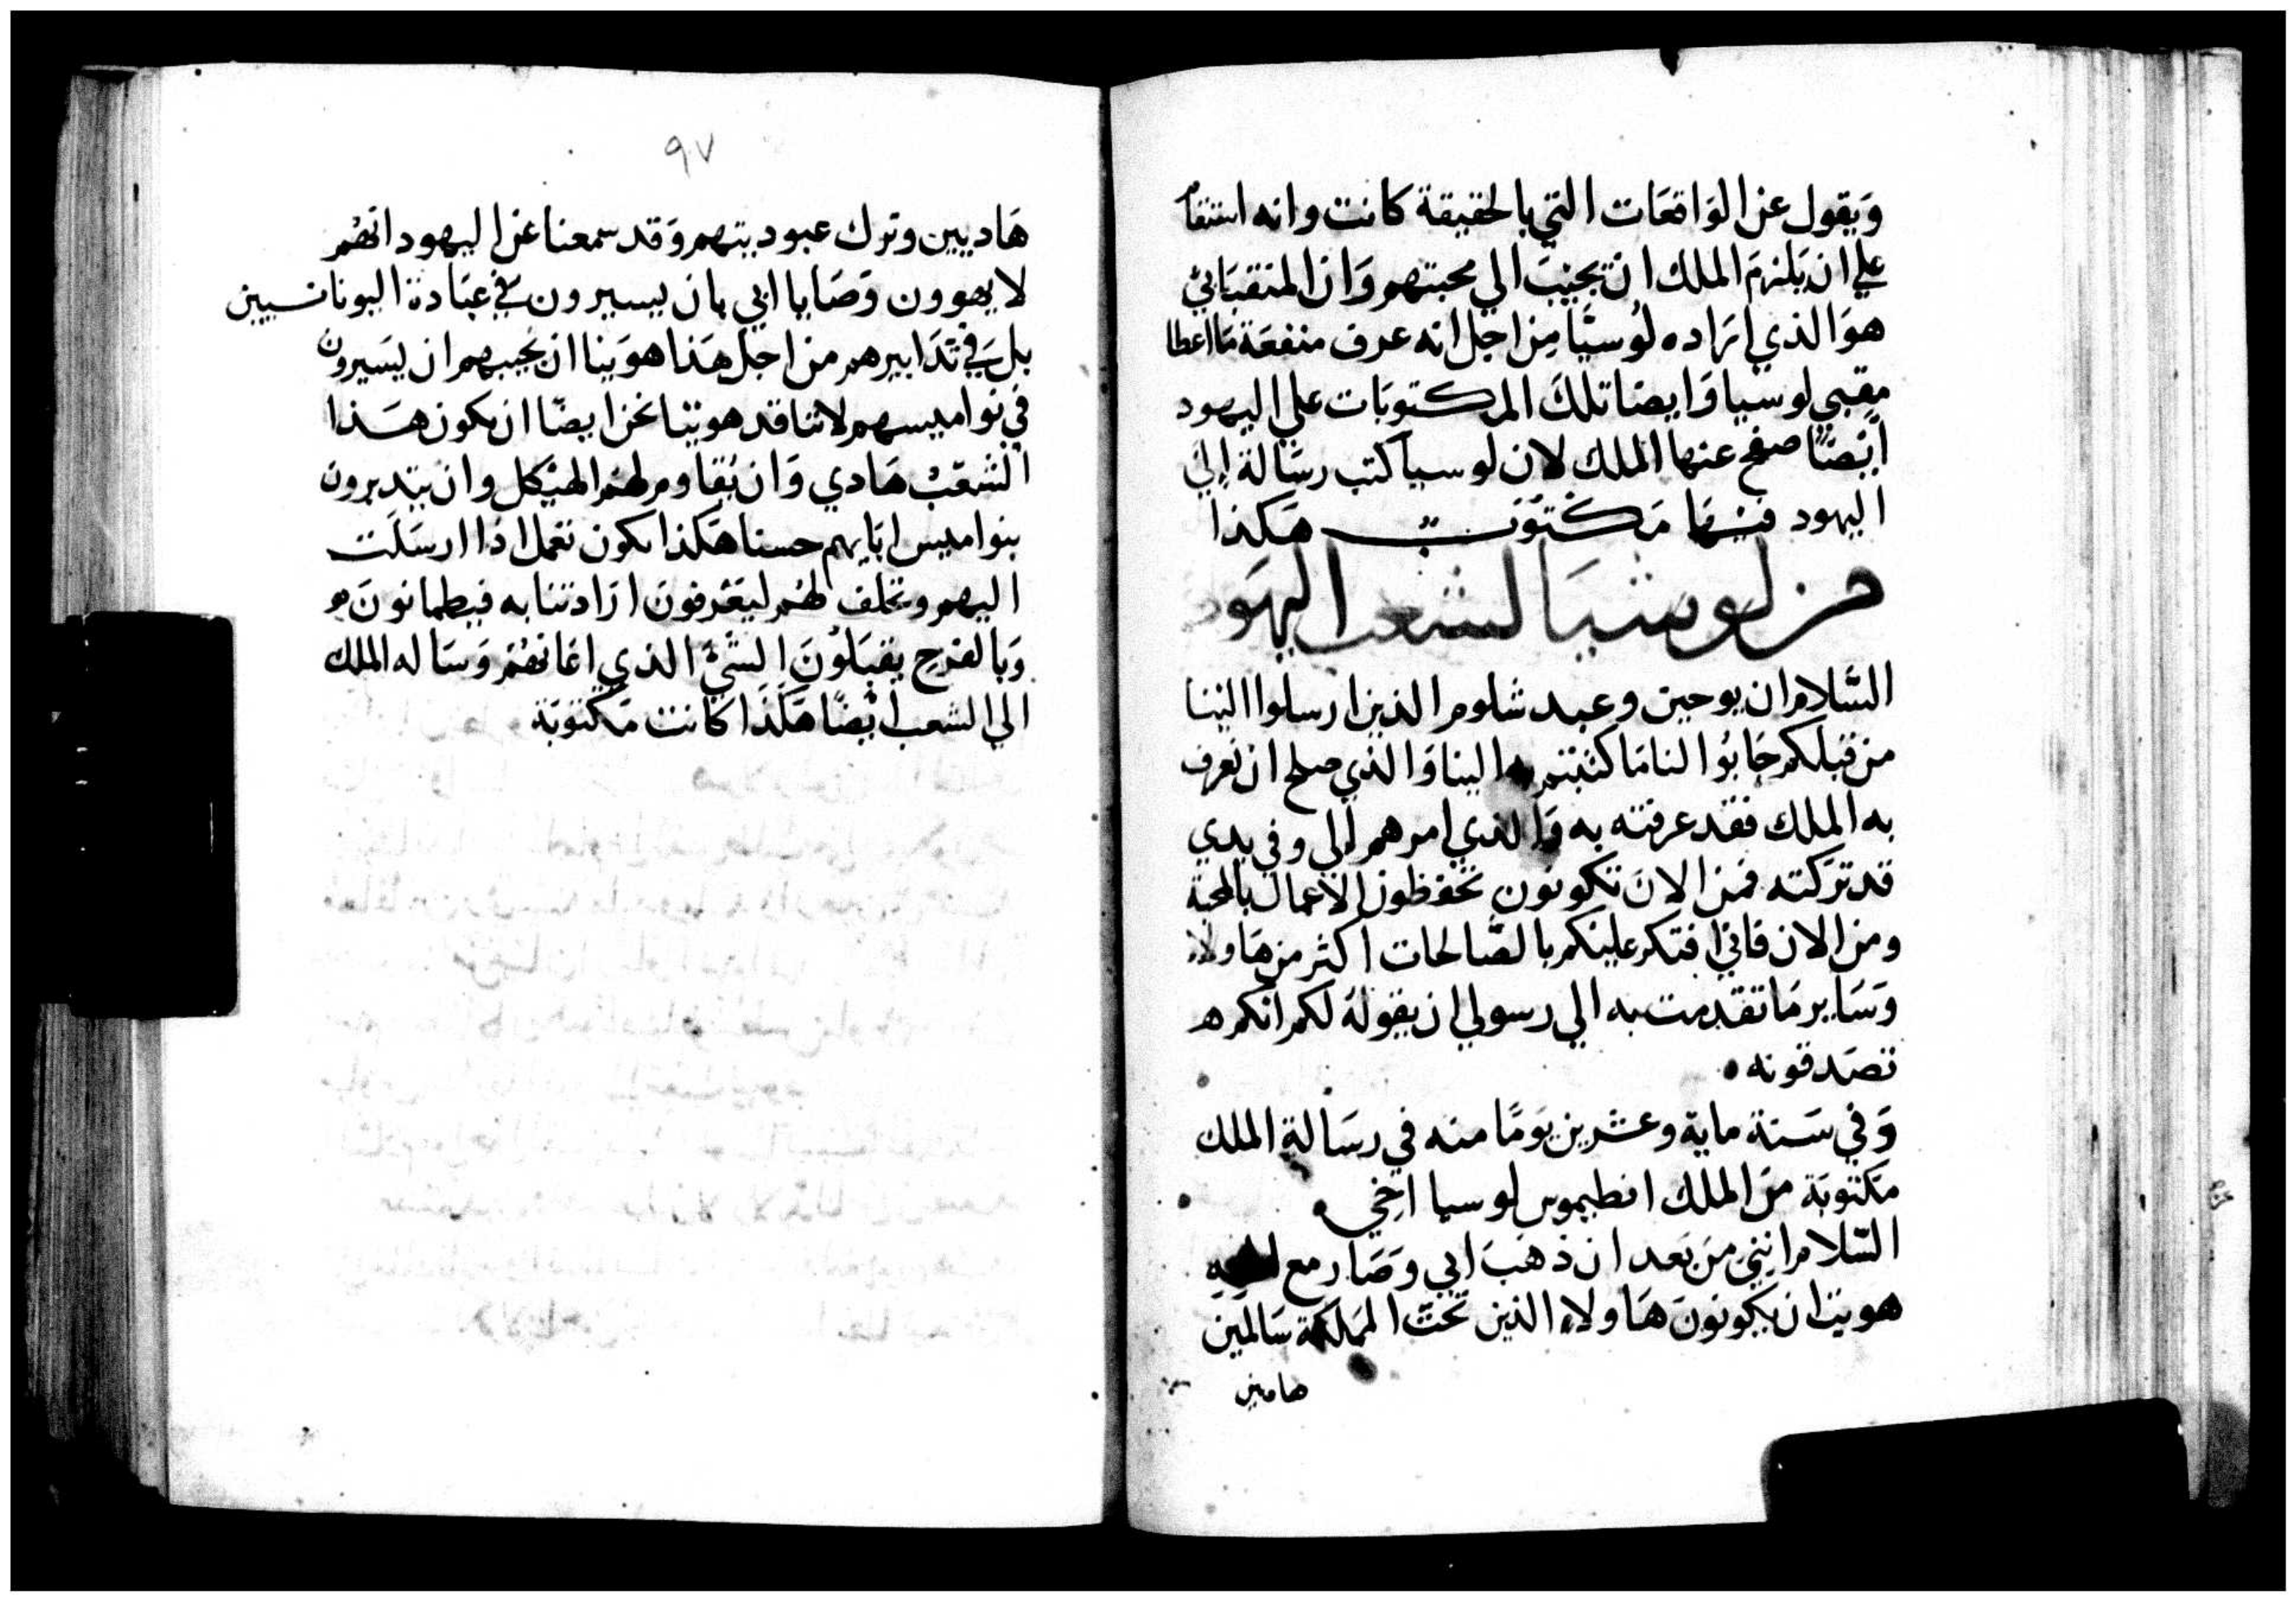 وَيقول عن الوَاقعَات التي بالحقيقة كانت وانه استقام
علي ان يَلزمَ الملك ان يجيبَ الي محبتهم وَان المتقبَاني
هوَ الذي ارَاده لوُسيَا مِن اجل انه عرف منفعَة مَا اعطا
مقبي لوسيا وَايضا تلكَ المكتوبَات علي اليهود
ايْضًا صفح عنها الملك لان لوسيا كتب رسَالة إلي
اليهود فيهَا مَكتوبَ هَكذا
من لوسيَا لشعب اليهَود
السَّلام ان يوحين وعبد شلوم الذين ارسلوا الينا
من قبلكم جَابُوا لنا مَا كتبتم الينا وَالذي صلح ان نعرف
به الملك فقد عرفته به وَالذي امرهم لي وفي يدي
قد ترَكته فمن الانَ تكونون تحفظون الاعمال بالمحبة
ومن الان فاني افتكر علينكم بالصَّالحات اكثر من هَاولاء
وَسَاير مَا تقدمت به الي رسولي ان يقولهُ لكم انكم
تصَدقونه
وَفي سَنة ماية وعشرين يوَمًا منه في رسَالةِ الملك
مَكتوبَة منَ الملك انطيموس لوسيا اخي
السَّلام انني من بَعد ان ذهَبَ ابي وَصَار مع
هويت ان يكونونَ هَاولاءِ الذين تحت المملكة سَالمين
هامين
٩٧
هَاديين وترك عبوديتهم وَقد سمعنا عن اليهود انهُم
لا يهوون وَصَايا ابي بان يسيرون في عبَادة اليونانسيين
بل في تَدَابيرهم من اجل هَذا هوَينا ان نجيبهم ان ليَسيرون
في نواميسهم لاننا قد هوينا نحن ايضًا ان يكون هَذا
الشعَبْ هَادي وَان نُقاوم لهُم الهيْكل وان يتدبرون
بنواميس ابَايهم حسنا هَكذا تكون تعمل اذا ارسَلَت
اليهم وتحلف لهُم ليعَرفونَ ارَادتنا به فيطمانونَ
وَبالفرَح يقبَلوُنَ الشَيْ الذي اغانهُم وَسَاله الملك
الي الشعب ايْضًا هَكَذَا كانت مَكتوبَة